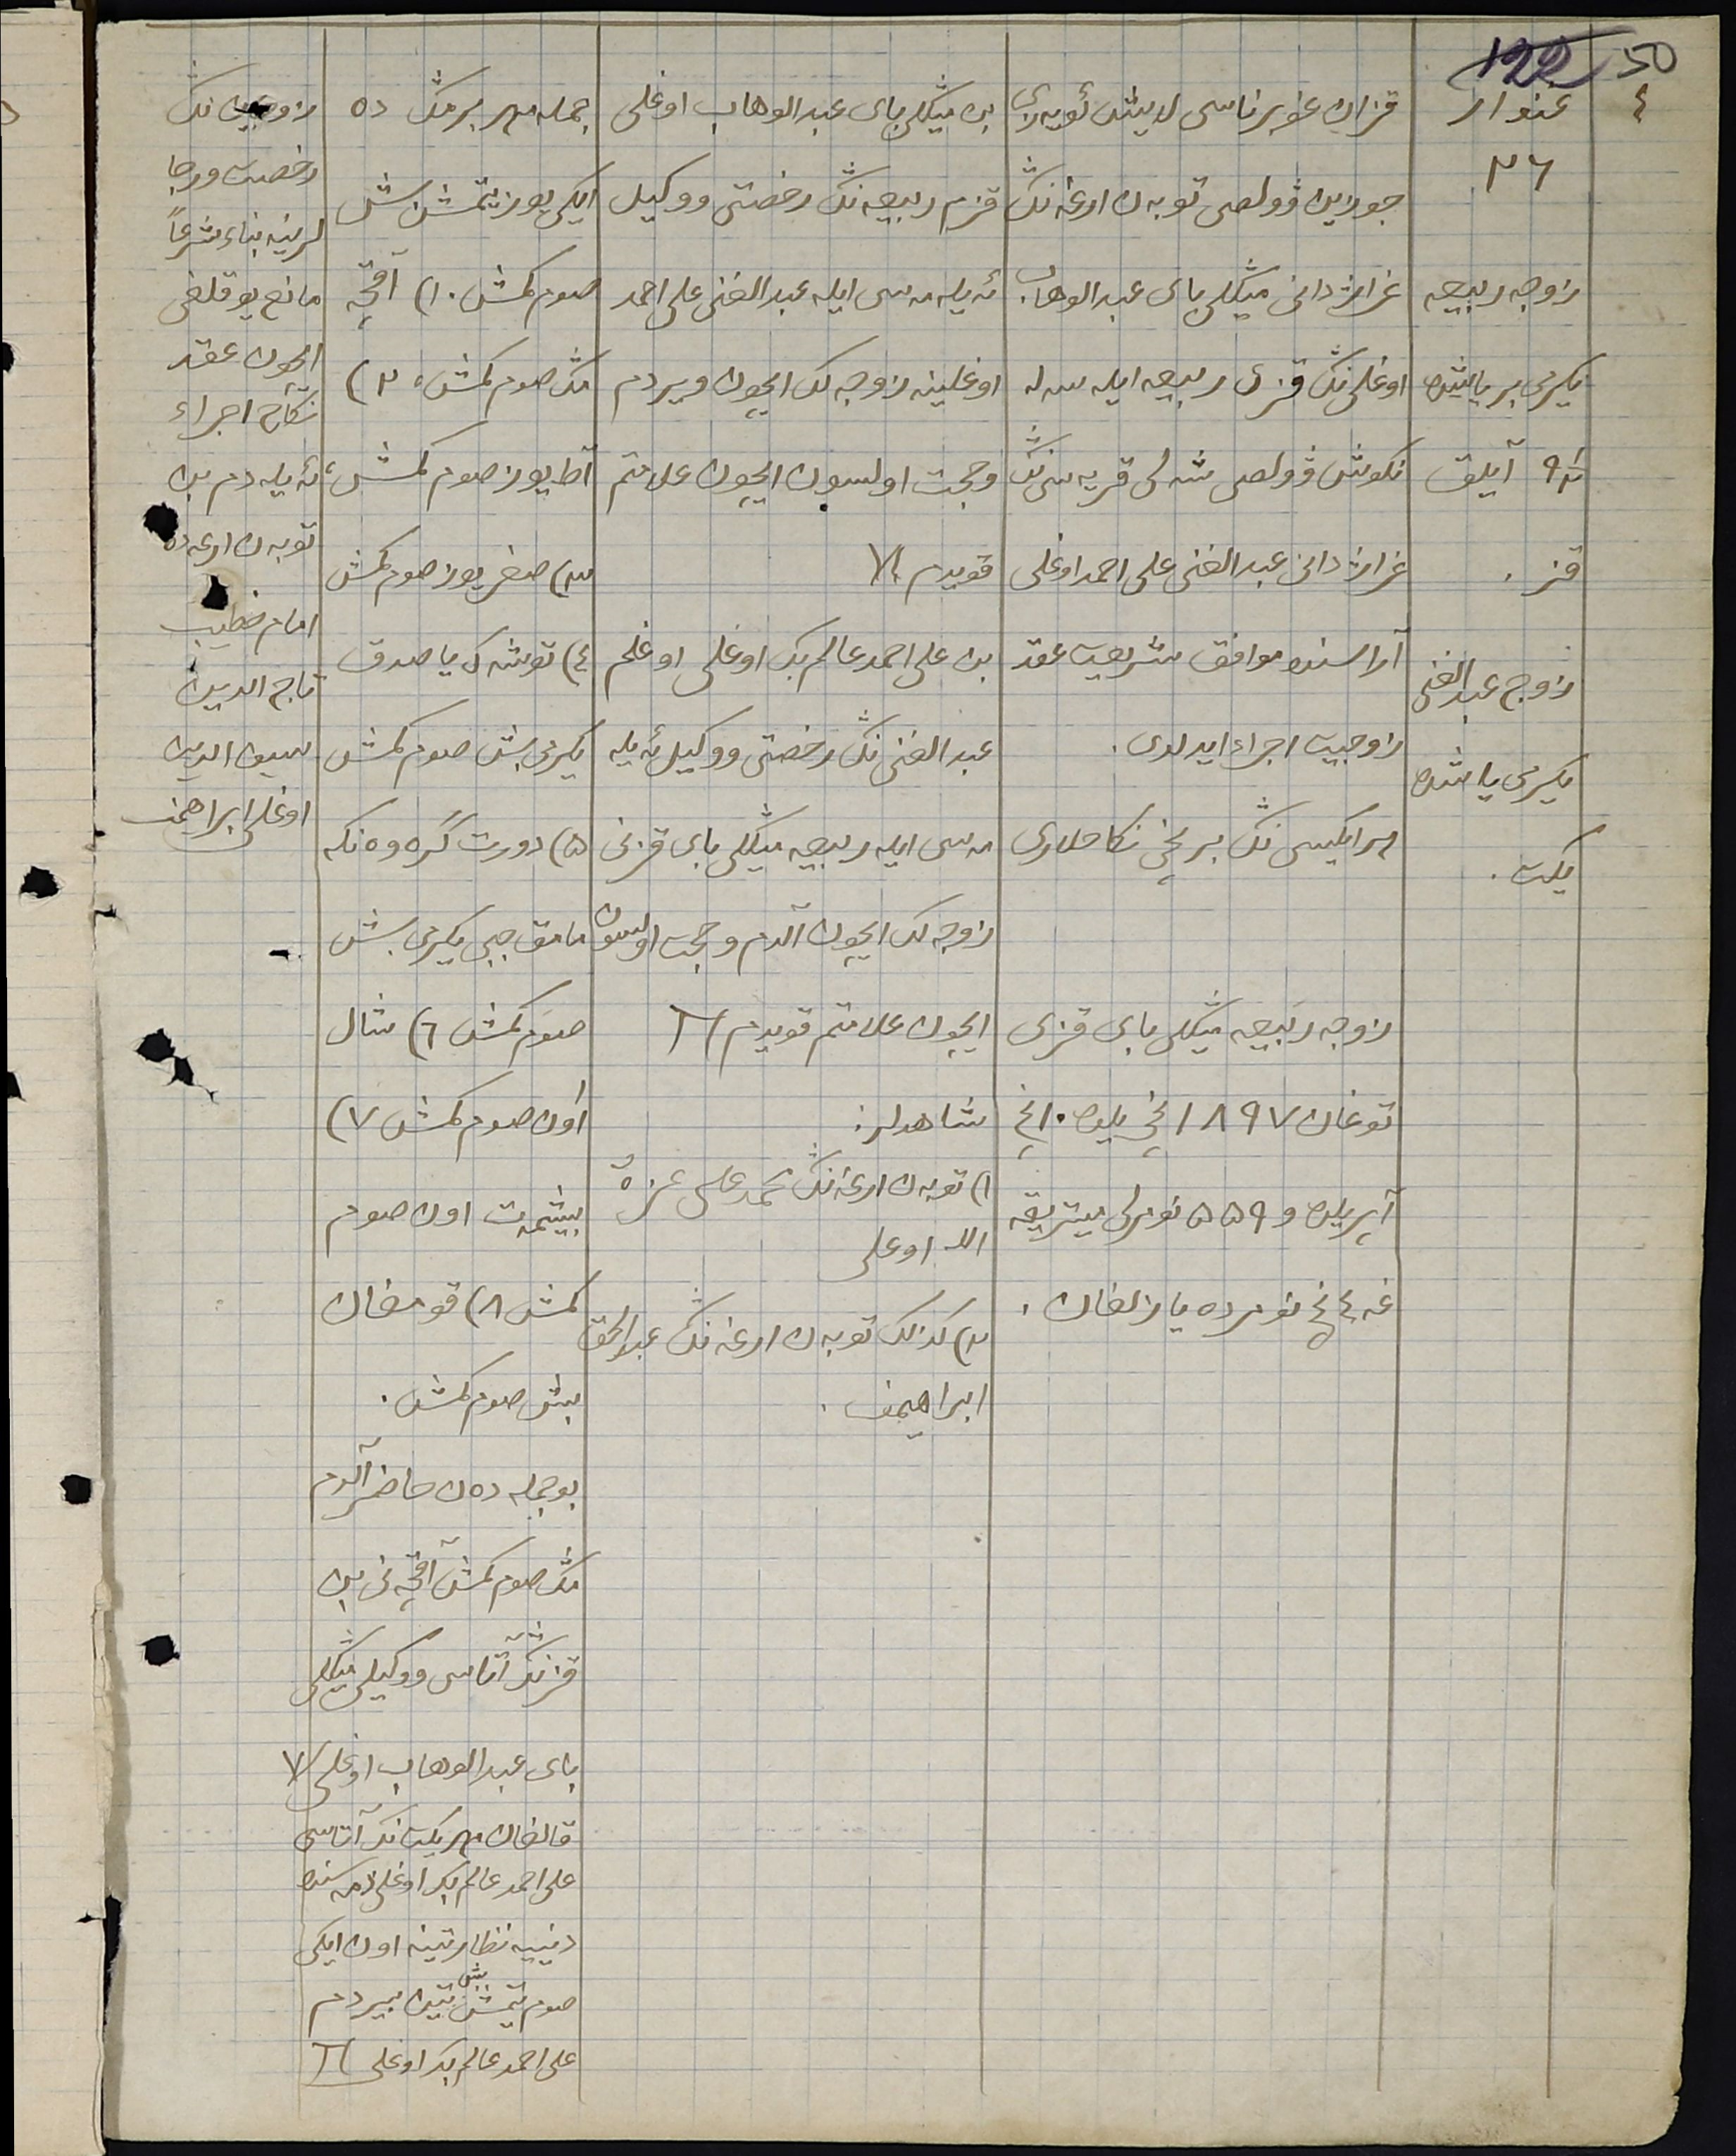 50
122
٤
غنوار
٢٦
زوجه ربیعه
یکرمی بر یاشنده
٩ آیلق
قز .
زوج عبد الغنی
یکرمی یاشنده
یکت .
قزان غوبرناسی لایش ئویه‌زی
چورین ڤولصی توبه‌ن ارغه‌نڭ
غراژدانی میڭلی بای عبد الوهاب
اوغلی‌نڭ قزی ربیعه ایله سه‌له
نکوش ڤولصی شه‌لی قریه‌سی‌نڭ
غراژدانی عبد الغنی علی احمد اوغلی
آراسنده موافق شریعت عقد
زوجیت اجراء ایدلدی .
هر ایکیسی‌نڭ برنچی نکاحلاری
زوجه ربیعه میڭلی بای قزی
توغان ١٨٩٧ نچی یلده ١٠ نچی
آپریلده و ٥٥٩ نومرلی میتریقه
غه ٤ نچی نومرده یازلغان .
بن میڭلی بای عبد الوهاب اوغلی
قزم ربیعه‌نڭ رخصتی ووکیل
ئه‌یله‌مه‌سی ایله عبد الغنی علی احمد
اوغلینه زوجه‌لک ایچون ویردم
وحجت اولسون ایچون علامتم
قویدم
بن علی احمد عالم‌بک اوغلی اوغلم
عبد الغنی‌نڭ رخصتی ووکیل ئه‌یله
مه‌سی ایله ربیعه میڭلی بای قزنی
زوجه‌لک ایچون آلدم وحجت اولسون
ایچون علامتم قویدم
شاهدلر :
١) توبه‌ن ارغه‌نڭ محمد علی عزة
الله اوغلی
٢) کذلک توبه‌ن ارغه‌نڭ عبد الحق
ابراهیمف .
جمله مهر بر مڭ ده
ایکی یوز یتمش بش
صوم کمش . ١) آقچه
مڭ صوم کمش ، ٢)
آطا یوز صوم کمش ،
٣) صغر یوز صوم کمش
٤) توشه‌ک یاصدق
یکرمی بش صوم کمش
٥) دورت گره‌وه‌نکه
مامق جبی یکرمی بش
صوم کمش ٦) شال
اون صوم کمش ٧)
بیشمه‌ت اون صوم
کمش ٨) قومغان
بیش صوم کمش .
بو جمله‌ده‌ن حاضر آلدم
مڭ صوم کمش آقچه‌نی بن
قزنڭ آتاسی ووکیلی میڭلی
بای عبد الوهاب اوغلی
قالغان مهر یکت‌نڭ آتاسی
علی احمد عالم‌بک اوغلی ذمه‌سنده
دینیه نظارتینه اون ایکی
صوم یتمش بیش تین بیردم
علی احمد عالم‌بک اوغلی
زوجیین‌نڭ
رخصت ورجا
لرینه بناء شرعاً
مانع یوقلغی
ایچون عقد
نکاح اجراء
ئه‌یله‌دم بن
توبه‌ن ارغه‌ده
امام خطیب
تاج الدین
سیف الدین
اوغلی ابراهیمف